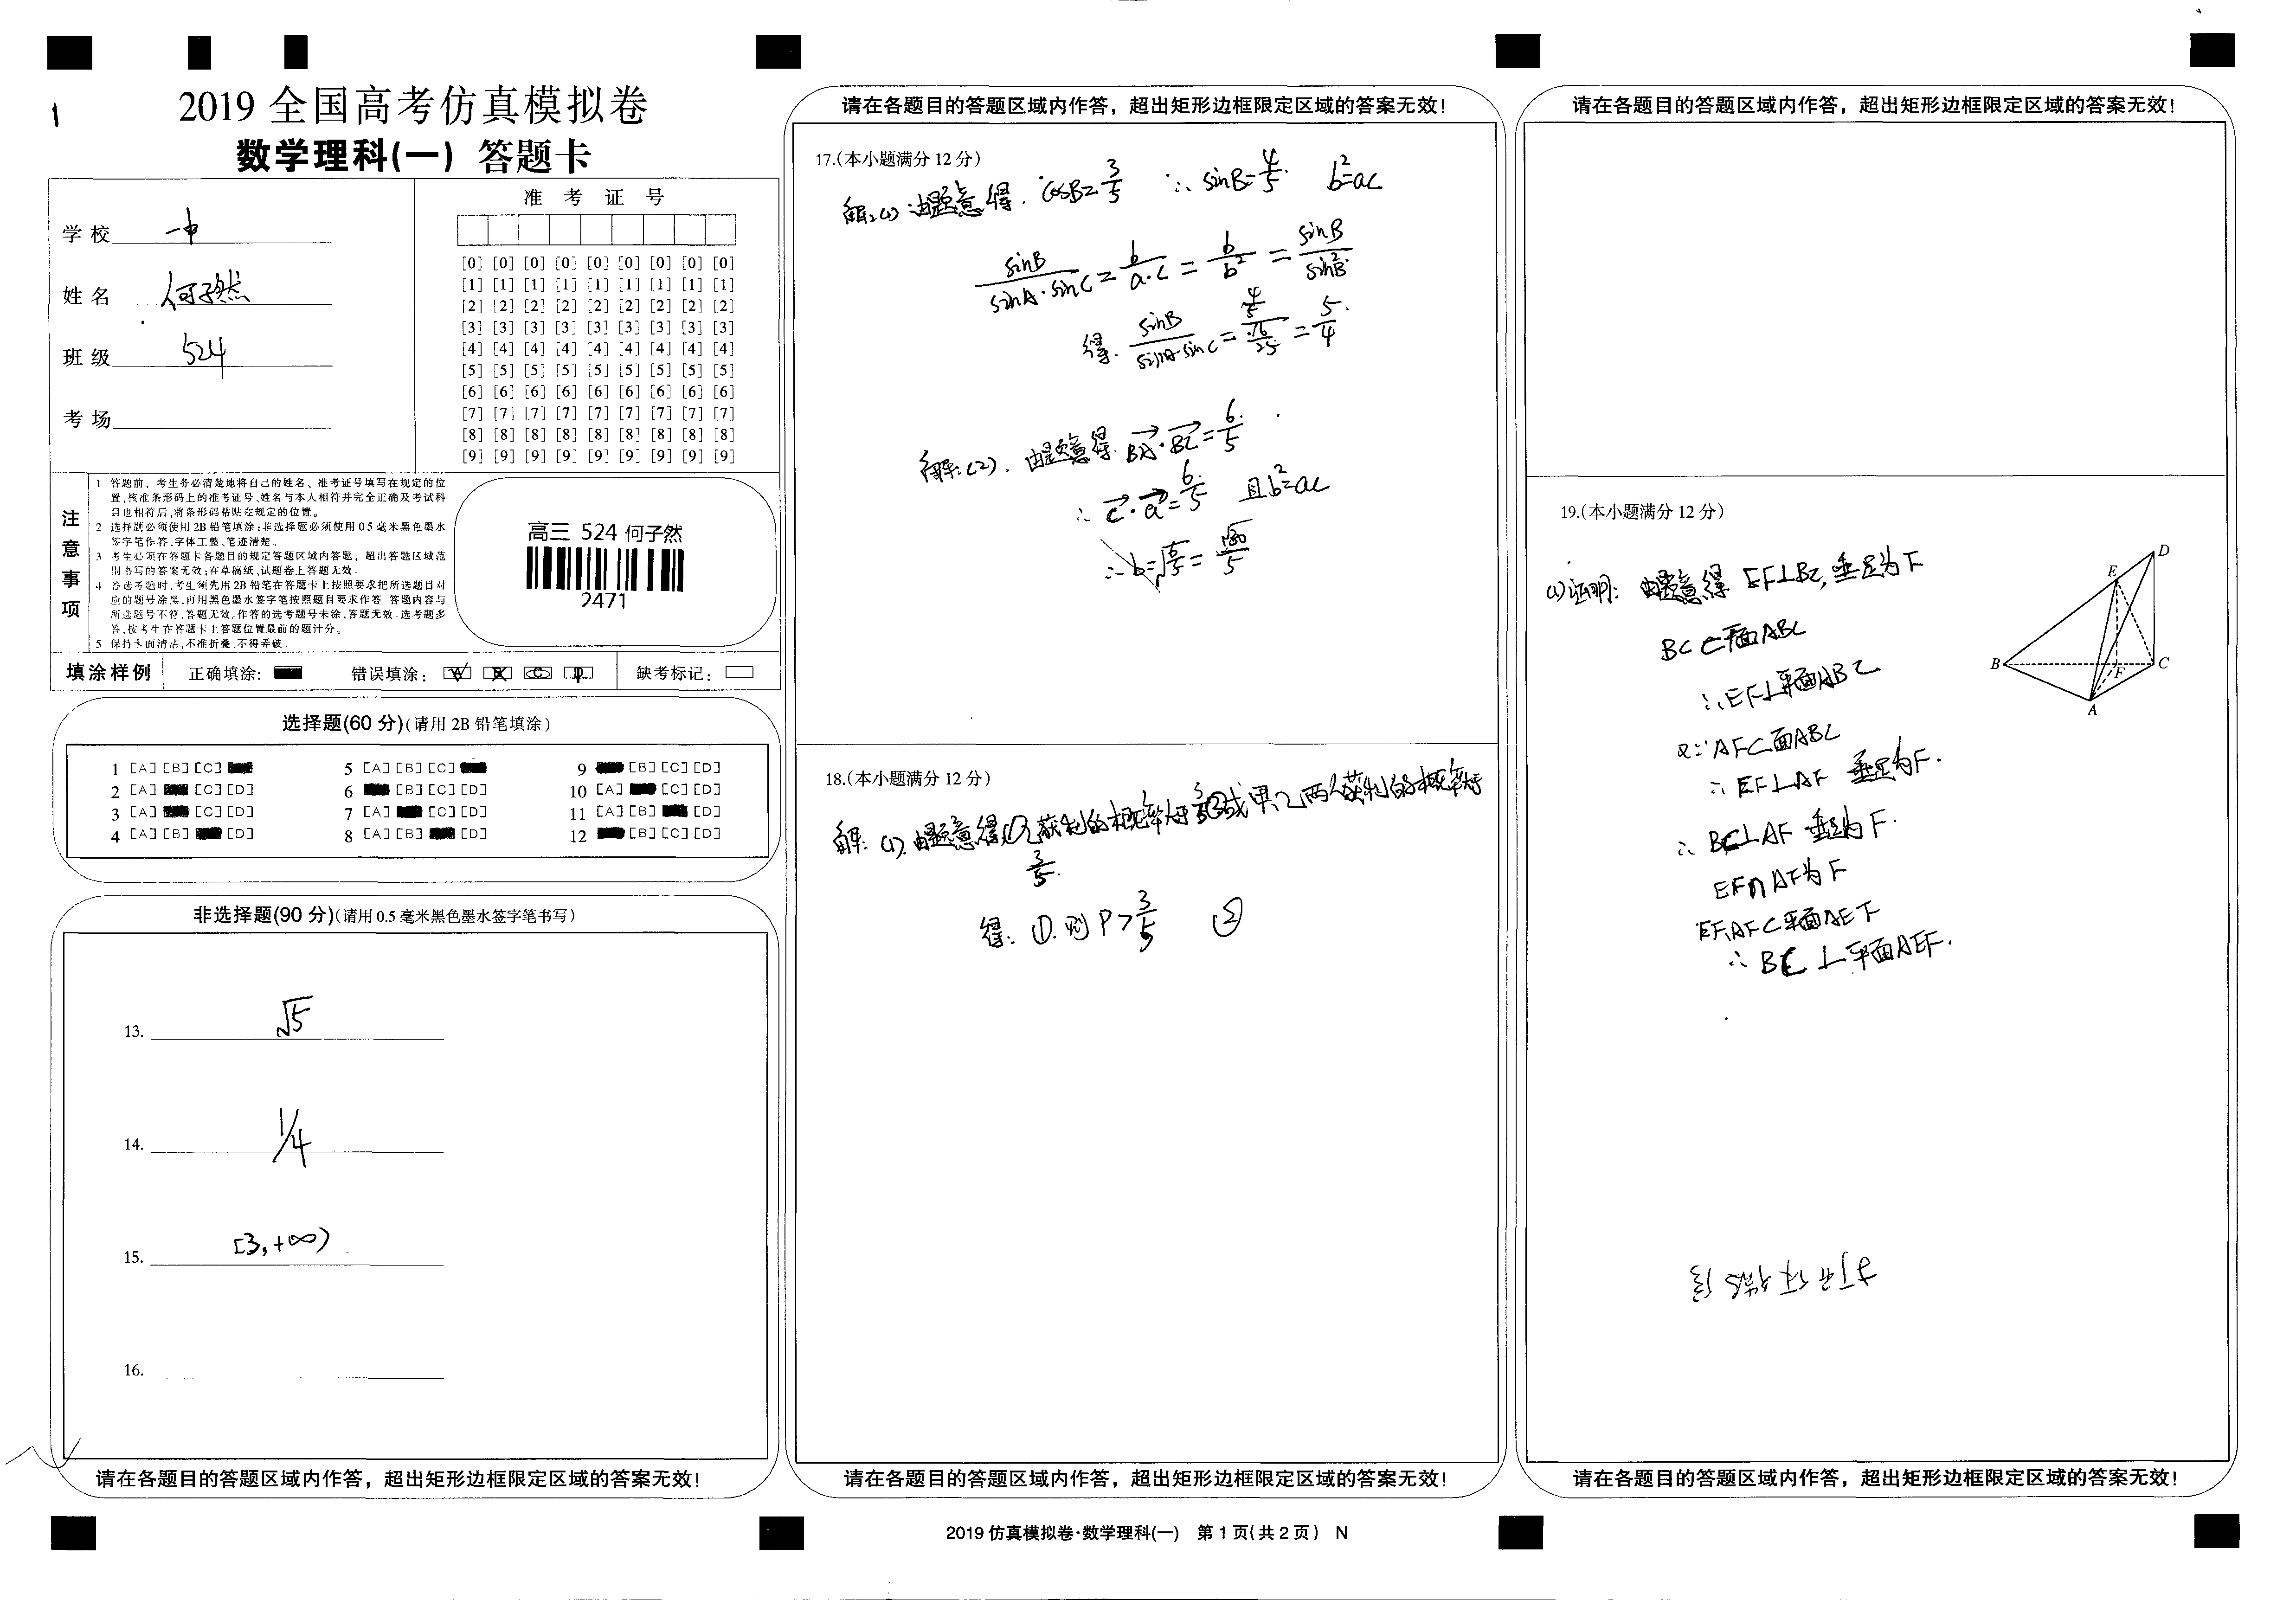 1
2019 全国高考仿真模拟卷
数学理科(一) 答题卡
学校 一中
姓名 何子然
班级 524
考场
准 考 证 号
[0] [0] [0] [0] [0] [0] [0] [0] [0]
[1] [1] [1] [1] [1] [1] [1] [1] [1]
[2] [2] [2] [2] [2] [2] [2] [2] [2]
[3] [3] [3] [3] [3] [3] [3] [3] [3]
[4] [4] [4] [4] [4] [4] [4] [4] [4]
[5] [5] [5] [5] [5] [5] [5] [5] [5]
[6] [6] [6] [6] [6] [6] [6] [6] [6]
[7] [7] [7] [7] [7] [7] [7] [7] [7]
[8] [8] [8] [8] [8] [8] [8] [8] [8]
[9] [9] [9] [9] [9] [9] [9] [9] [9]
注意事项
1 答题前，考生务必清楚地将自己的姓名、准考证号填写在规定的位
置,核准条形码上的准考证号、姓名与本人相符并完全正确及考试科
目也相符后,将条形码粘贴在规定的位置。
2 选择题必须使用2B铅笔填涂;非选择题必须使用0 5毫米黑色墨水
签字笔作答,字体工整、笔迹清楚。
3 考生必须在答题卡各题目的规定答题区域内答题，超出答题区域范
围书写的答案无效;在草稿纸、试题卷上答题无效.
4 各选考题时,考生须先用2B铅笔在答题卡上按照要求把所选题目对
应的题号涂黑,再用黑色墨水签字笔按照题目要求作答 答题内容与
所选题号不符,答题无效。作答的选考题号未涂,答题无效。选考题多
答,按考生在答题卡上答题位置最前的题计分。
5 保持卡面清洁,不准折叠、不得弄破.
高三 524 何子然
2471
填涂样例 正确填涂: 错误填涂: 缺考标记:
选择题(60 分)(请用 2B 铅笔填涂)
1 [A] [B] [C] 5 [A] [B] [C] 9 [B] [C] [D]
2 [A] [C] [D] 6 [B] [C] [D] 10 [A] [C] [D]
3 [A] [C] [D] 7 [A] [C] [D] 11 [A] [B] [D]
4 [A] [B] [D] 8 [A] [B] [D] 12 [B] [C] [D]
非选择题(90 分)(请用 0.5 毫米黑色墨水签字笔书写)
13. √5
14. 1/4
15. [3,+∞)
16.
请在各题目的答题区域内作答，超出矩形边框限定区域的答案无效!
请在各题目的答题区域内作答，超出矩形边框限定区域的答案无效!
17.(本小题满分 12 分)
解:(1)由题意得. cosB=3/5 ∴ sinB=4/5. b²=ac
sinB/(sinA·sinC)=b/(a·c)=b/b²=sinB/sin²B
得. sinB/(sinA·sinC)=(4/5)/(16/25)=5/4.
解:(2). 由题意得. BA·BC=6/5.
∴ c·a=6/5 且b²=ac
∴b=√(6/5)=√30/5
18.(本小题满分 12 分)
解: (1).由题意得①乙获利的概率大于3/5②或甲、乙两人获利的概率大于
3/5.
得: ①.则 P>3/5 ②
请在各题目的答题区域内作答，超出矩形边框限定区域的答案无效!
2019 仿真模拟卷·数学理科(一) 第 1 页(共 2 页) N
请在各题目的答题区域内作答，超出矩形边框限定区域的答案无效!
19.(本小题满分 12 分)
D
E
B
F
C
A
(1)证明: 由题意得 EF⊥BC,垂足为F
BC⊂平面ABC
∴EF⊥平面ABC
又∵AF⊂面ABC
∴EF⊥AF 垂足为F.
∴ BC⊥AF 垂足为F.
EF∩AF为F
EF,AF⊂平面AEF
∴ BC⊥平面AEF.
请在各题目的答题区域内作答，超出矩形边框限定区域的答案无效!